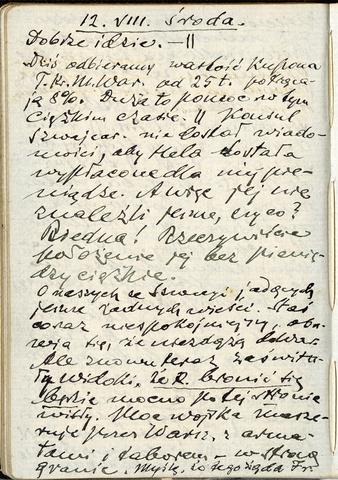 12. VIII. Środa.
Dobrze idzie. —||
Dziś odbieramy wartość Kupona
T. Kr. M. War. od 25 t.
ją 8%. Duża to pomoc w tym
ciężkim czasie. || Konsul
Szwajcar. nie dostał wiado-
mości, aby Hela dostała
wypłacone dla niej pie-
niądze. A więc jej nie
znaleźli jeszcze, czy co?
Biedna! Rzeczywiście
położenie jej bez pienię-
dzy ciężkie.
O naszych ze Szwecji jadących
jeszcze żadnych wieści. Staś
coraz niespokojniejszy, oba-
wia się, że nie zdążą dojechać.
Ale znowu teraz zaświta-
ły widoki, że R. bronić się
będzie mocno po tej stronie
Wisły. Moc wojska masze-
ruje przez Warsz. z arma-
tami i taborem — w stronę
granic. Myślę, że tego żąda Fr.